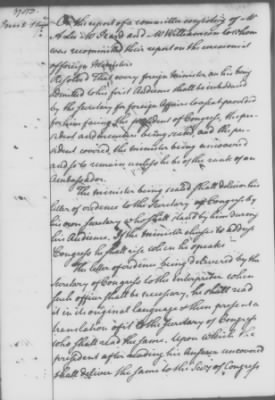 On the report of a committee consisting of Mr
Mr Izard and Mr Williamson to whom
was recommitted their report on the ceremonial
of foreign Ministers
Resolved That every foreign minister on his being
admitted to his first Audience shall be introduced
by the Secretary for foreign Affairs to a seat provided
for him facing the president of Congress, the pre-
sident and members being seated, and the pre-
sident covered, the minister being uncovered
and so to remain unless he be of the rank of an
Ambassador.
The minister being seated shall deliver his
letter of credence to the Secretary of Congress by
his own Secretary who shall stand by him during
his Audience. If the minister chuses to address
Congress he shall rise when he speaks
The letter of credence being delivered by the
Secretary of Congress to the interpreter when
such officer shall be necessary, he shall read
it in its original language & then present a
translation of it to the Secretary of Congress
who shall read the same. Upon which the
president after reading his Answer uncovered
shall deliver the same to the Secy of Congress